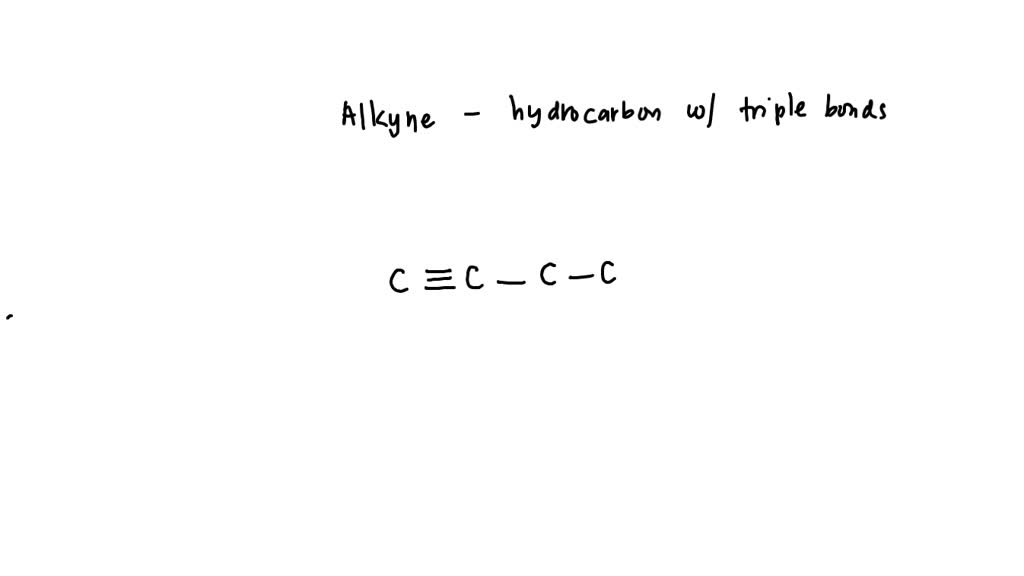 Alkyne - hydrocarbon w/ triple bonds
C ≡ C — C — C